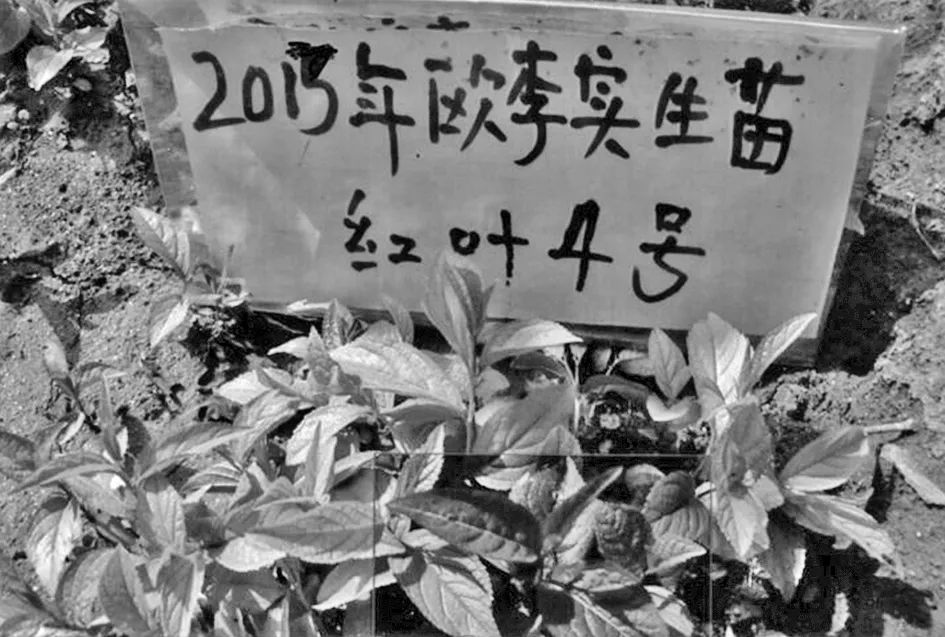 2015年欧李实生苗
红叶4号